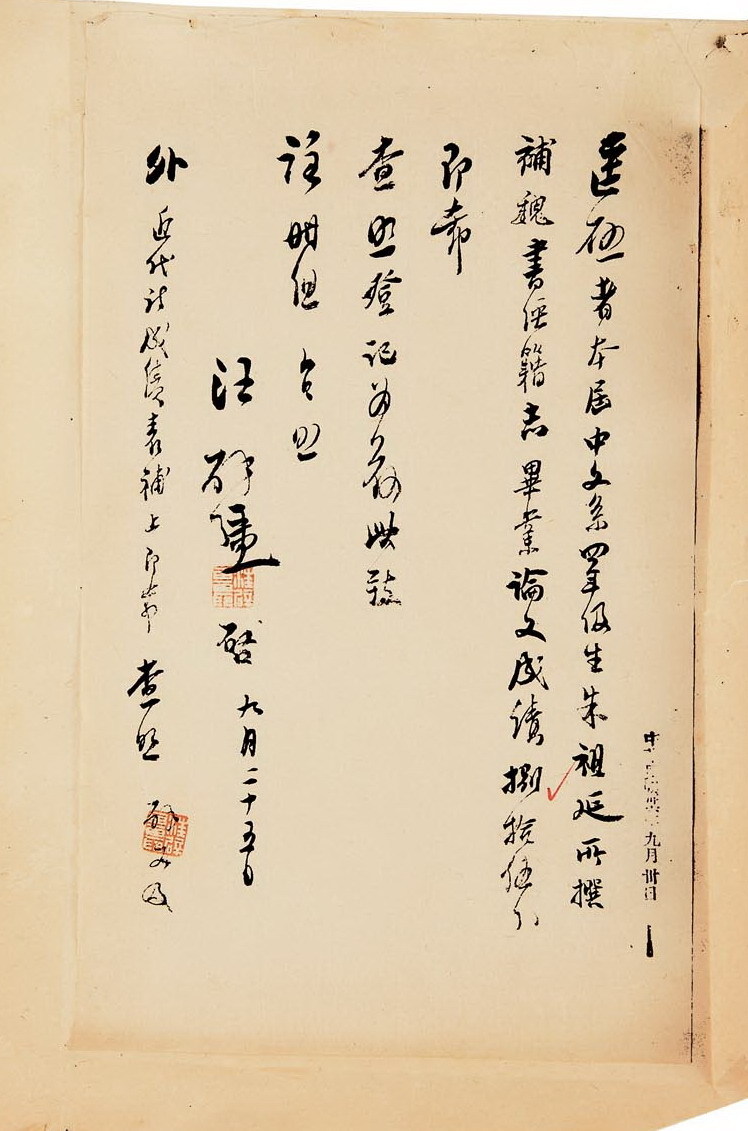 中華民國卅六年九月卅日
逕啟者本屆中文系四年級生朱祖延所撰
補魏書經籍志畢業論文成績捌拾伍分
即希
查照登記為荷此致
註冊組 台照
汪辟疆啟 九月二十五日
外近代詩成績表補上即希 查照 辟疆又及